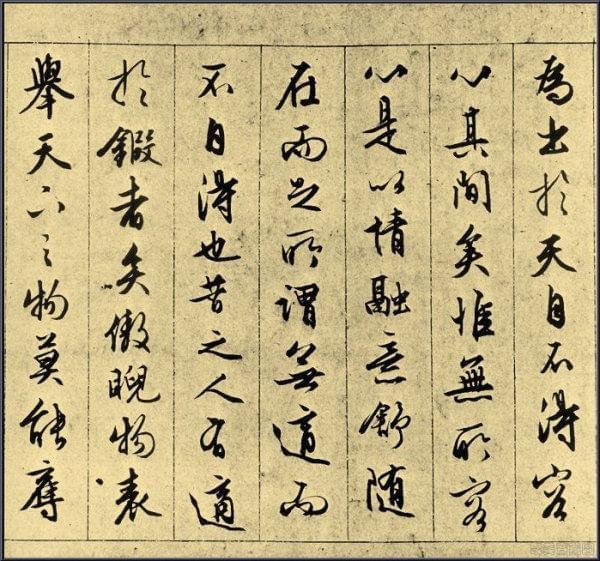 為出於天自不得容
心其間矣惟無所容
心是以情融意舒随
在而足所謂無適而
不自得也昔之人有適
於鍛者矣傲睨物表
舉天下之物莫能奪